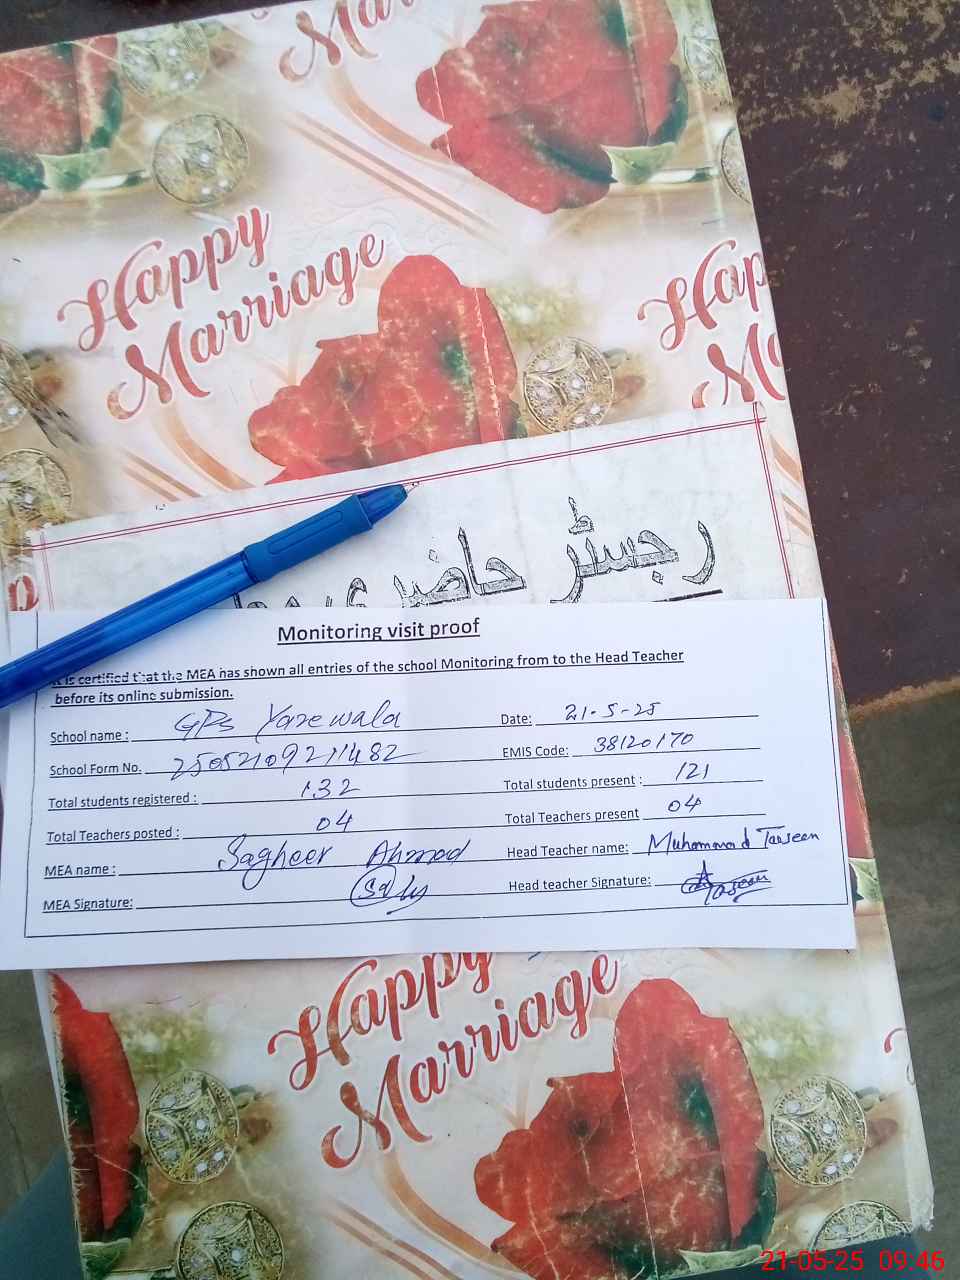 Mar
Happy
Marriage
Hap
Ma
رجسٹر حاضری
Monitoring visit proof
It is certified that the MEA has shown all entries of the school Monitoring from to the Head Teacher
before its online submission.
School name : GPS Yarewala Date: 21-5-25
School Form No. 25052109211482 EMIS Code: 38120170
Total students registered : 132 Total students present : 121
Total Teachers posted : 04 Total Teachers present 04
MEA name : Sagheer Ahmad Head Teacher name: Muhammad Taseen
MEA Signature: Head teacher Signature: Taseen
Happy
Marriage
21-05-25 09:46